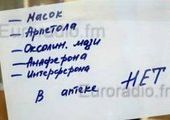 — Масок
— Арпетола
— Оксолин. мази
— Анаферона
— Интерферона
В аптеке НЕТ
Euroradio.fm
Euroradio.fm